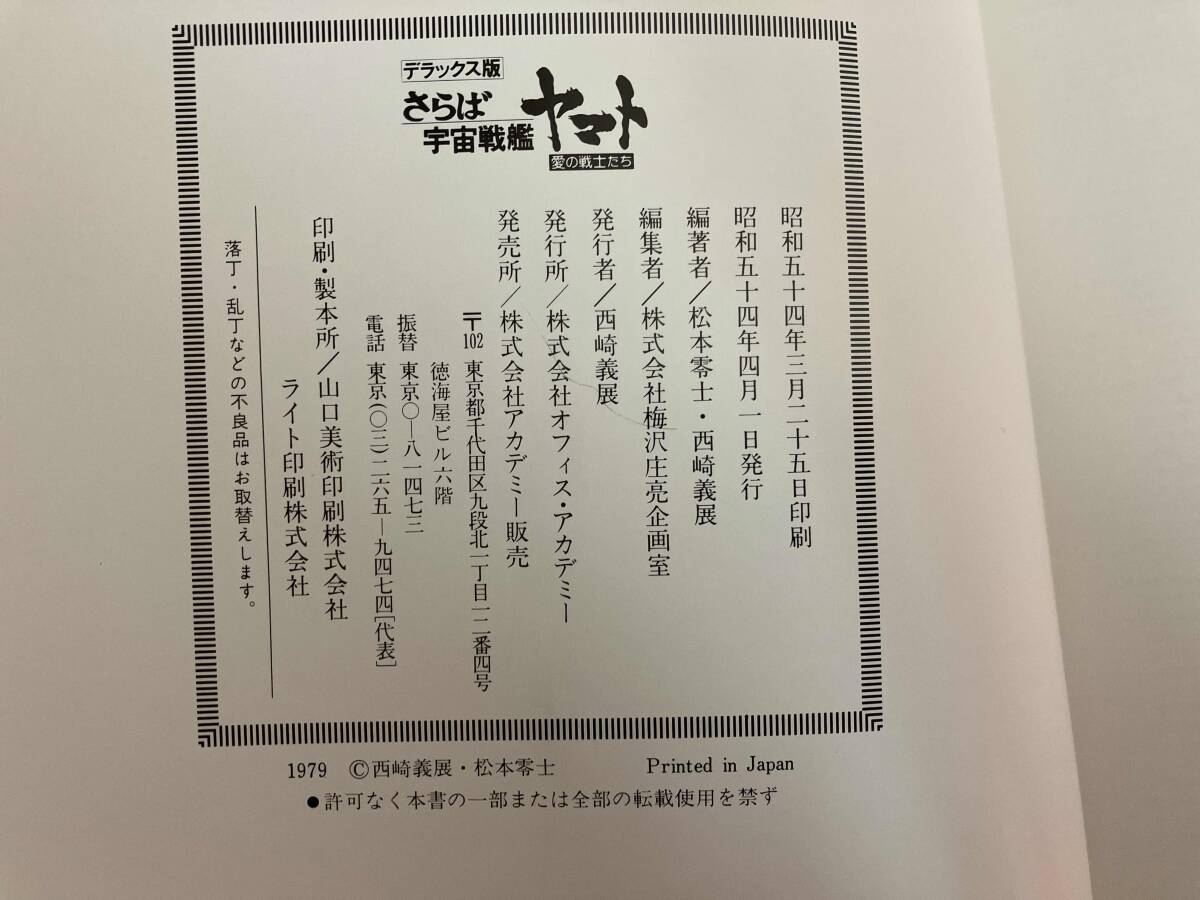 デラックス版
さらば
宇宙戦艦
ヤマト
愛の戦士たち
昭和五十四年三月二十五日印刷
昭和五十四年四月一日発行
編著者/松本零士・西崎義展
編集者/株式会社梅沢庄亮企画室
発行者/西崎義展
発行所/株式会社オフィス・アカデミー
発売所/株式会社アカデミー販売
〒102 東京都千代田区九段北一丁目一二番四号
徳海屋ビル六階
振替 東京〇―八一四七三
電話 東京(〇三)二六五―九四七四[代表]
印刷・製本所/山口美術印刷株式会社
ライト印刷株式会社
落丁・乱丁などの不良品はお取替えします。
1979 ©西崎義展・松本零士 Printed in Japan
●許可なく本書の一部または全部の転載使用を禁ず